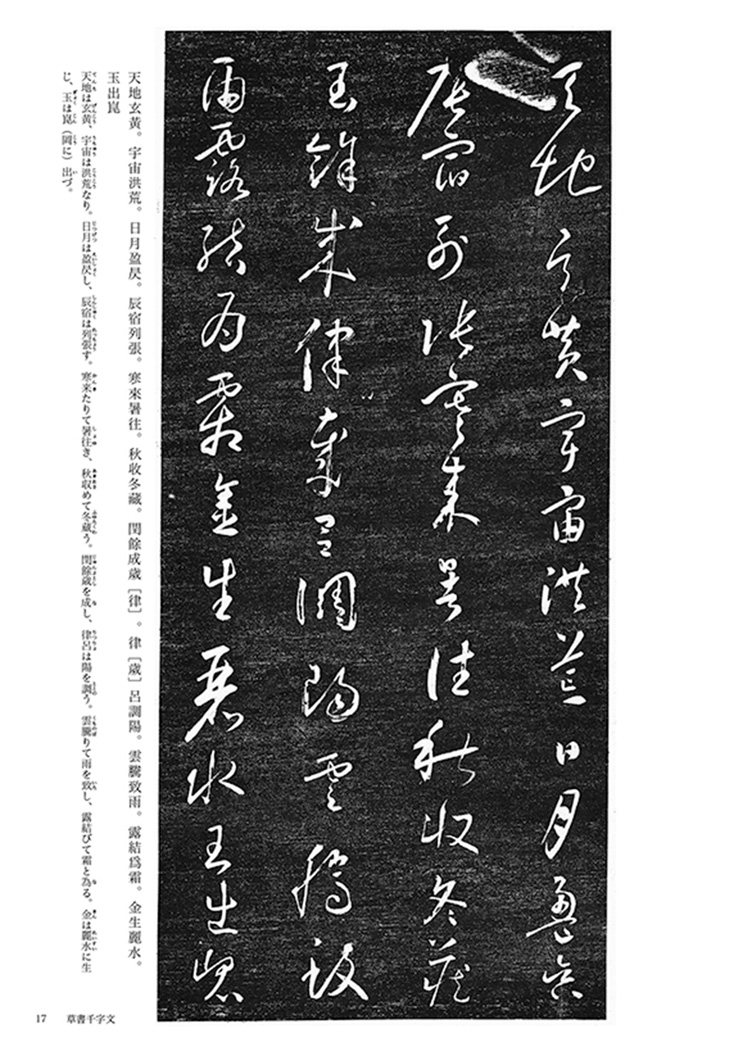 天地玄黃宇宙洪荒日月盈昃
辰宿列張寒來暑往秋收冬藏
閏餘成律歲呂調陽雲騰致
雨露結為霜金生麗水玉出崑
天地玄黃。宇宙洪荒。日月盈昃。辰宿列張。寒來暑往。秋收冬藏。閏餘成歳［律］。律［歳］呂調陽。雲騰致雨。露結爲霜。金生麗水。
玉出崑
天地は玄黄、宇宙は洪荒なり。日月は盈昃し、辰宿は列張す。寒来たりて暑往き、秋収めて冬蔵う。閏餘歳を成し、律呂は陽を調う。雲騰りて雨を致し、露結びて霜と為る。金は麗水に生
じ、玉は崑（岡に）出づ。
17 草書千字文